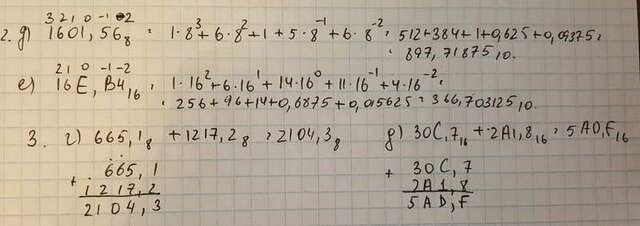 3 2 1 0 -1 -2
2. д) 1601,56₈ = 1·8³+6·8²+1+5·8⁻¹+6·8⁻² = 512+384+1+0,625+0,09375=
= 897,71875₁₀.
2 1 0 -1 -2
е) 16E,B4₁₆ = 1·16²+6·16¹+14·16⁰+11·16⁻¹+4·16⁻² =
= 256+96+14+0,6875+0,015625=366,703125₁₀.
3. г) 665,1₈ +1217,2₈ = 2104,3₈ д) 30C,7₁₆+2A1,8₁₆=5AD,F₁₆
+ 665,1 + 30C,7
1217,2 2A1,8
2104,3 5AD,F